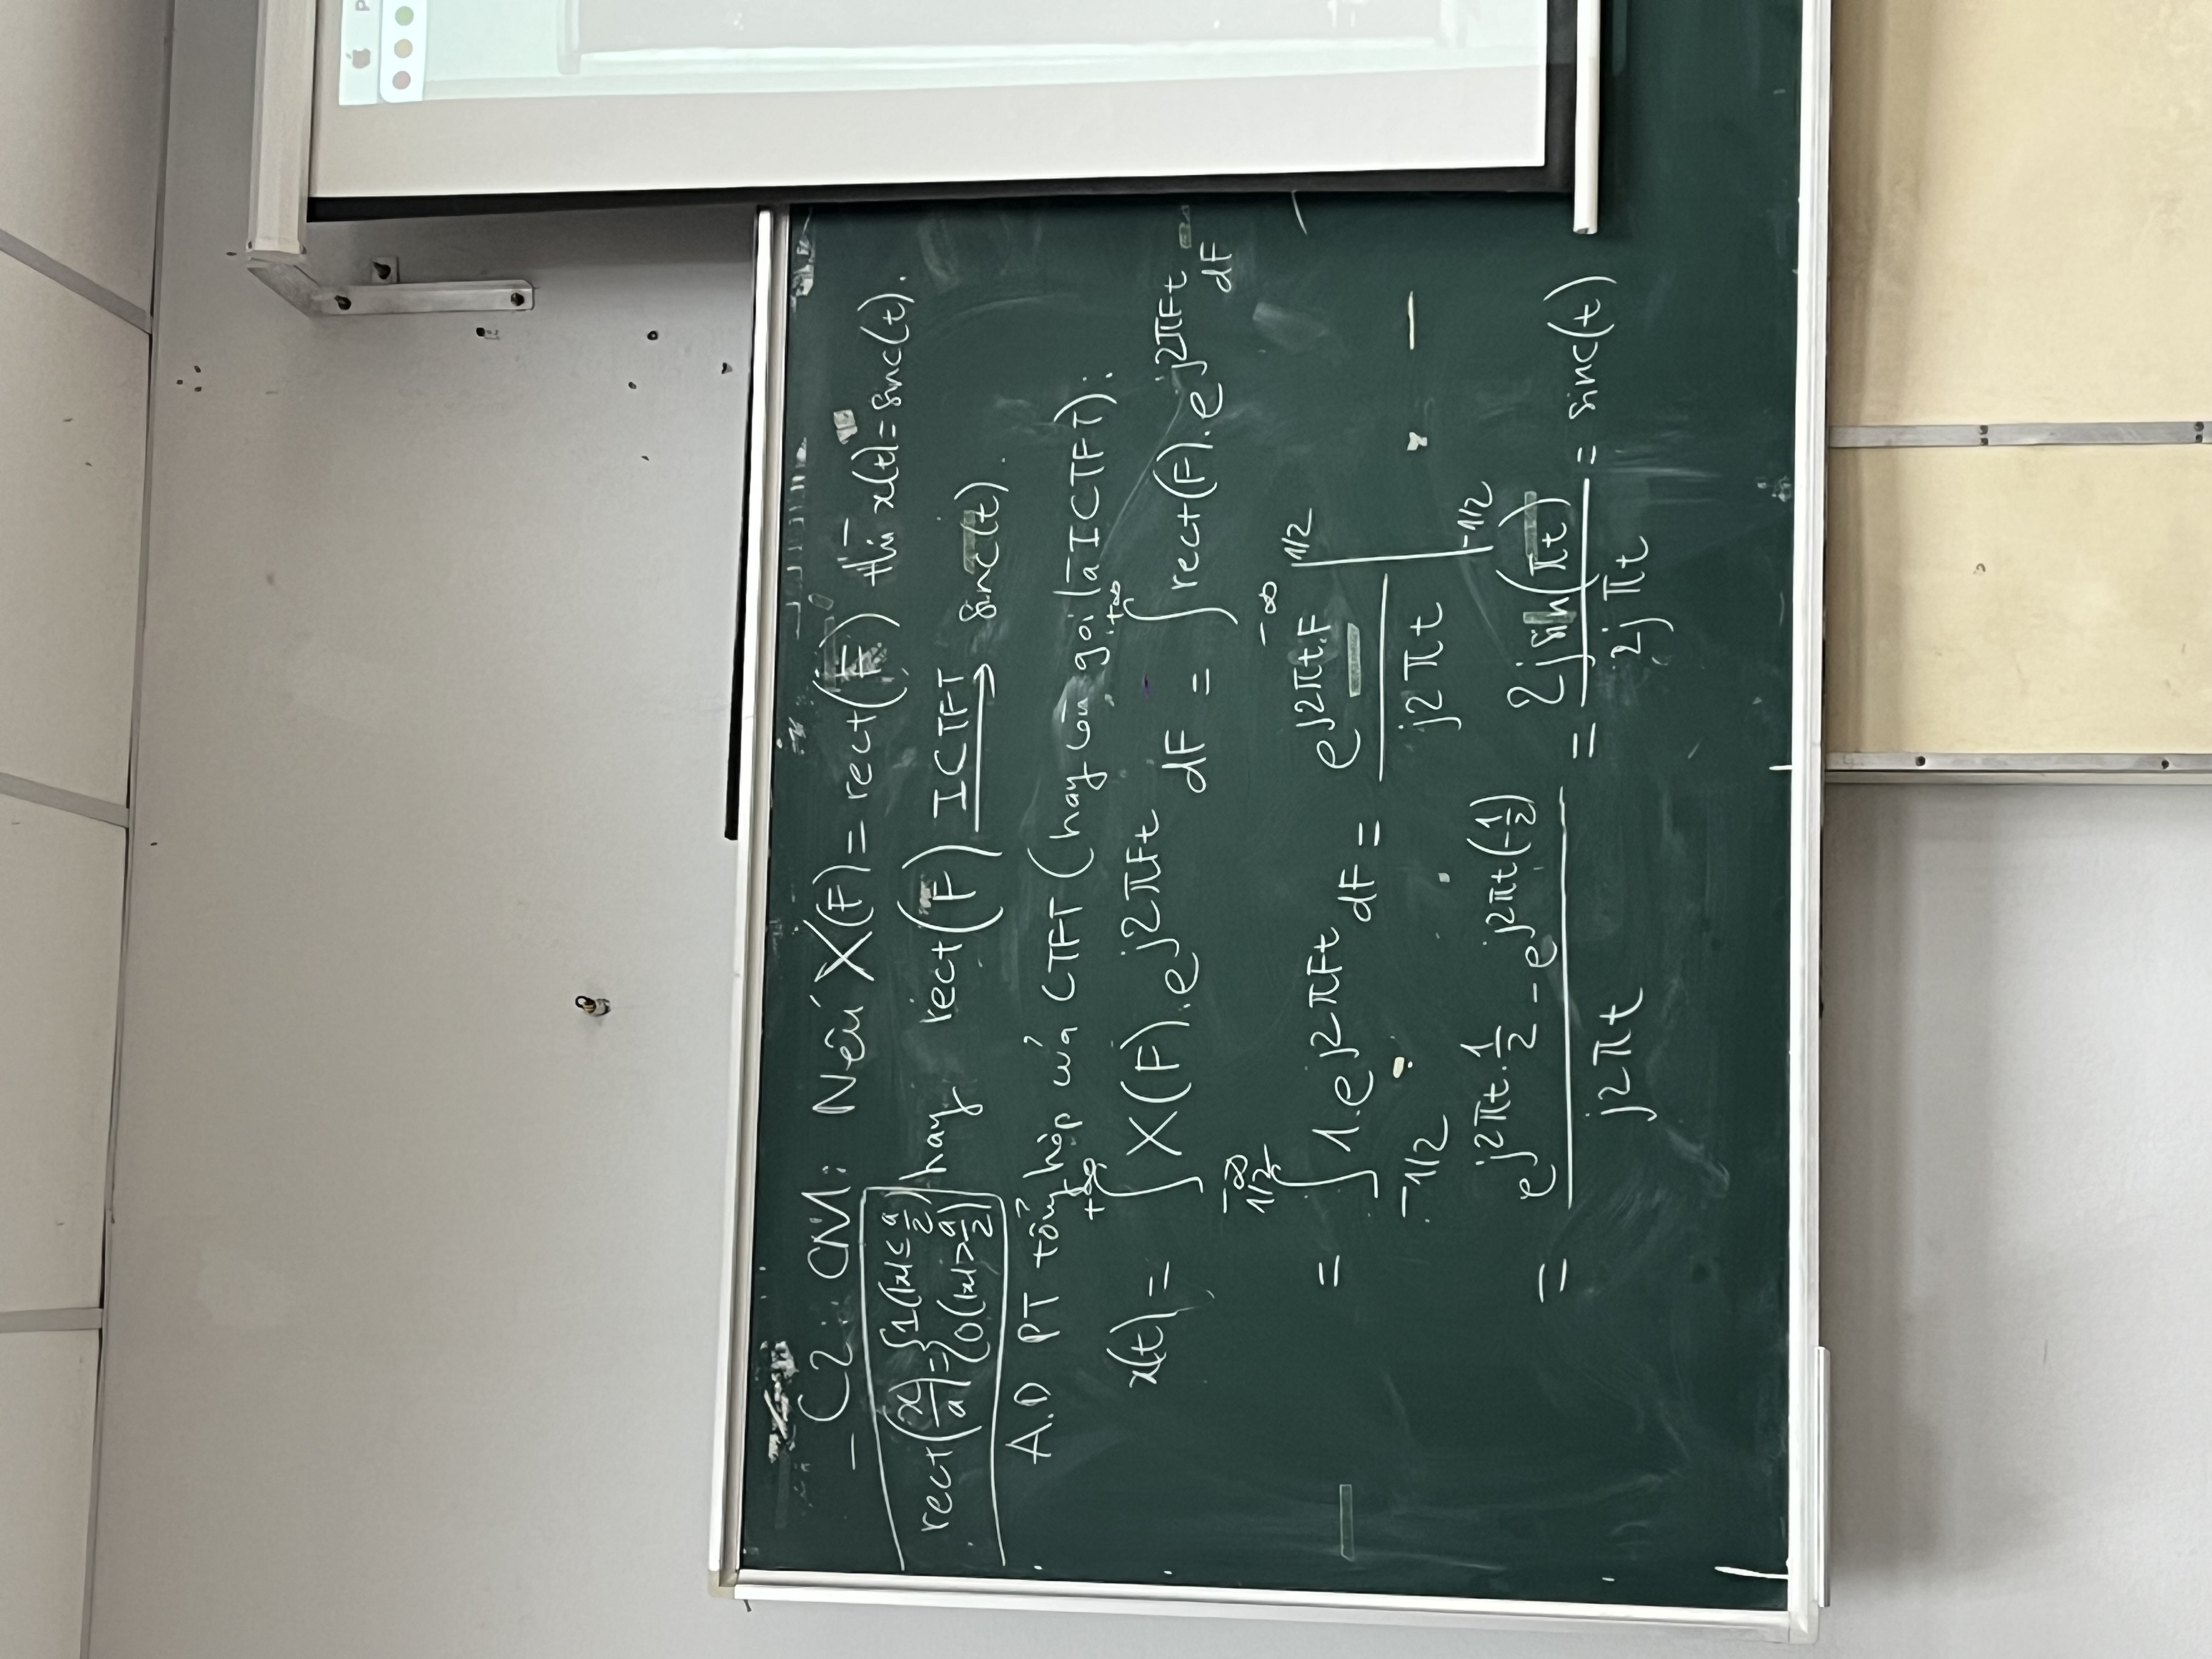 _ C2: CM: Nếu X(F) = rect(F) thì x(t) = sinc(t).
rect(x/a) = {1 (|x| ≤ a/2)
0 (|x| > a/2)
hay rect(F) ICTFT → sinc(t).
A.D PT tổng hợp của CTFT (hay còn gọi là ICTFT):
x(t) = ∫_{-∞}^{+∞} X(F).e^{j2πFt} dF = ∫_{-∞}^{+∞} rect(F).e^{j2πFt} dF
= ∫_{-1/2}^{1/2} 1.e^{j2πFt} dF = e^{j2πt.F} / j2πt |_{-1/2}^{1/2}
= (e^{j2πt.1/2} - e^{j2πt(-1/2)}) / j2πt = 2j sin(πt) / 2jπt = sinc(t)
P